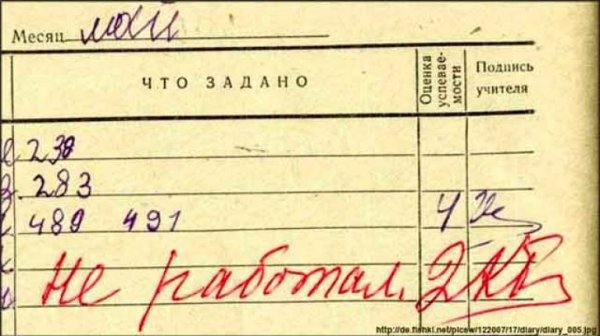 Месяц май
ЧТО ЗАДАНО Оценка успеваемости Подпись учителя
238
283
489 491 4
Не работал. 2
http://de.fishki.net/picsw/122007/17/diary/diary_005.jpg